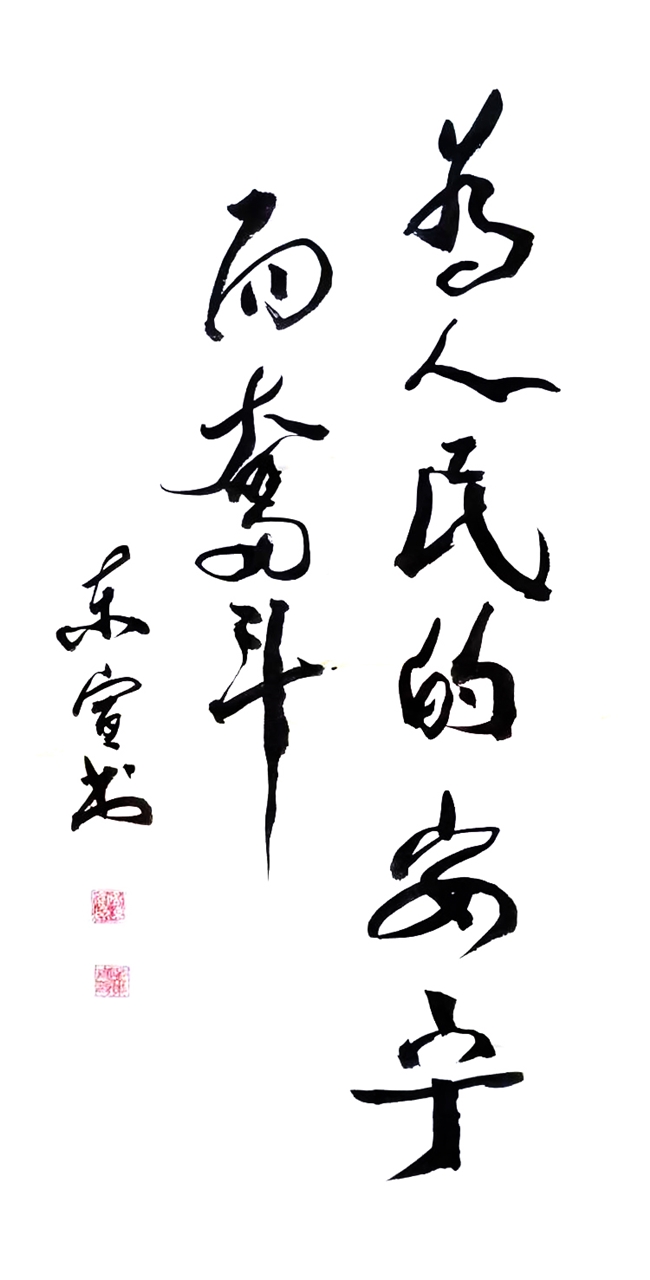 为人民的安宁
而奋斗
东宣书